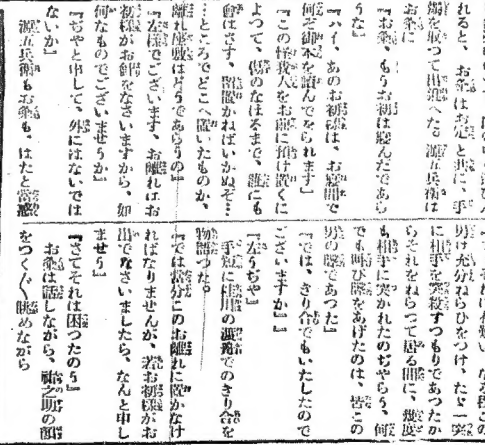 れると、お粂はお定と共に、手
燭を取つて出迎へた。源五兵衛は
お粂に
『お粂、もうお初は寝んだであら
うな』
『ハイ、あのお初様は、お寝間で
何ぞ御本を読んでをられます』
『この怪我人をお前に預け置くに
よつて、傷のなほるまで、誰にも
會はさず、留置かねばいかぬぞ…
…ところでどこへ置いたものか、
離れ座敷はどうであらうの』
『左様でございます、お離れはお
初様がお をなさいますから、如
何なものでございませうか』
『ぢやと申して、外にはないでは
ないか』
源五兵衛もお粂も、はたと當惑
男は充分ねらひをつけ、たゞ一突
に相手を突殺すつもりであつたか
らそれをねらつて居る間に、幾度
も相手に突かれたのぢやらう、何
でも叫び聲をあげたのは、皆この
男の聲であつた』
『では、きり合でもいたしたので
ございますか』
『左うぢや』
手短に桂川の渡船でのきり合を
物語つた。
『では當分このお離れに置かなけ
ればなりませんが、若お初様がお
出でなさいましたら、なんと申し
ませう』
『さてそれは困つたのう』
お粂は話しながら、 之助の顔
をつく〲眺めながら